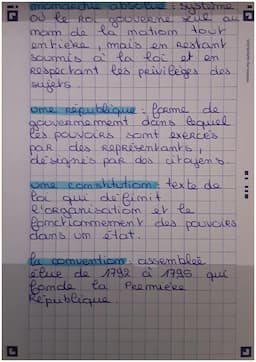 monarchie absolue : système
où le Roi gouverne seul au
nom de la nation tout
entière, mais en restant
soumis à la loi et en
respectant les privilèges des
sujets.
une république : forme de
gouvernement dans lequel
les pouvoirs sont exercés
par des représentants,
désignés par des citoyens.
une constitution : texte de
loi qui définit
l'organisation et le
fonctionnement des pouvoirs
dans un état.
la convention : assemblée
élue de 1792 à 1795 qui
fonde la Première
République.